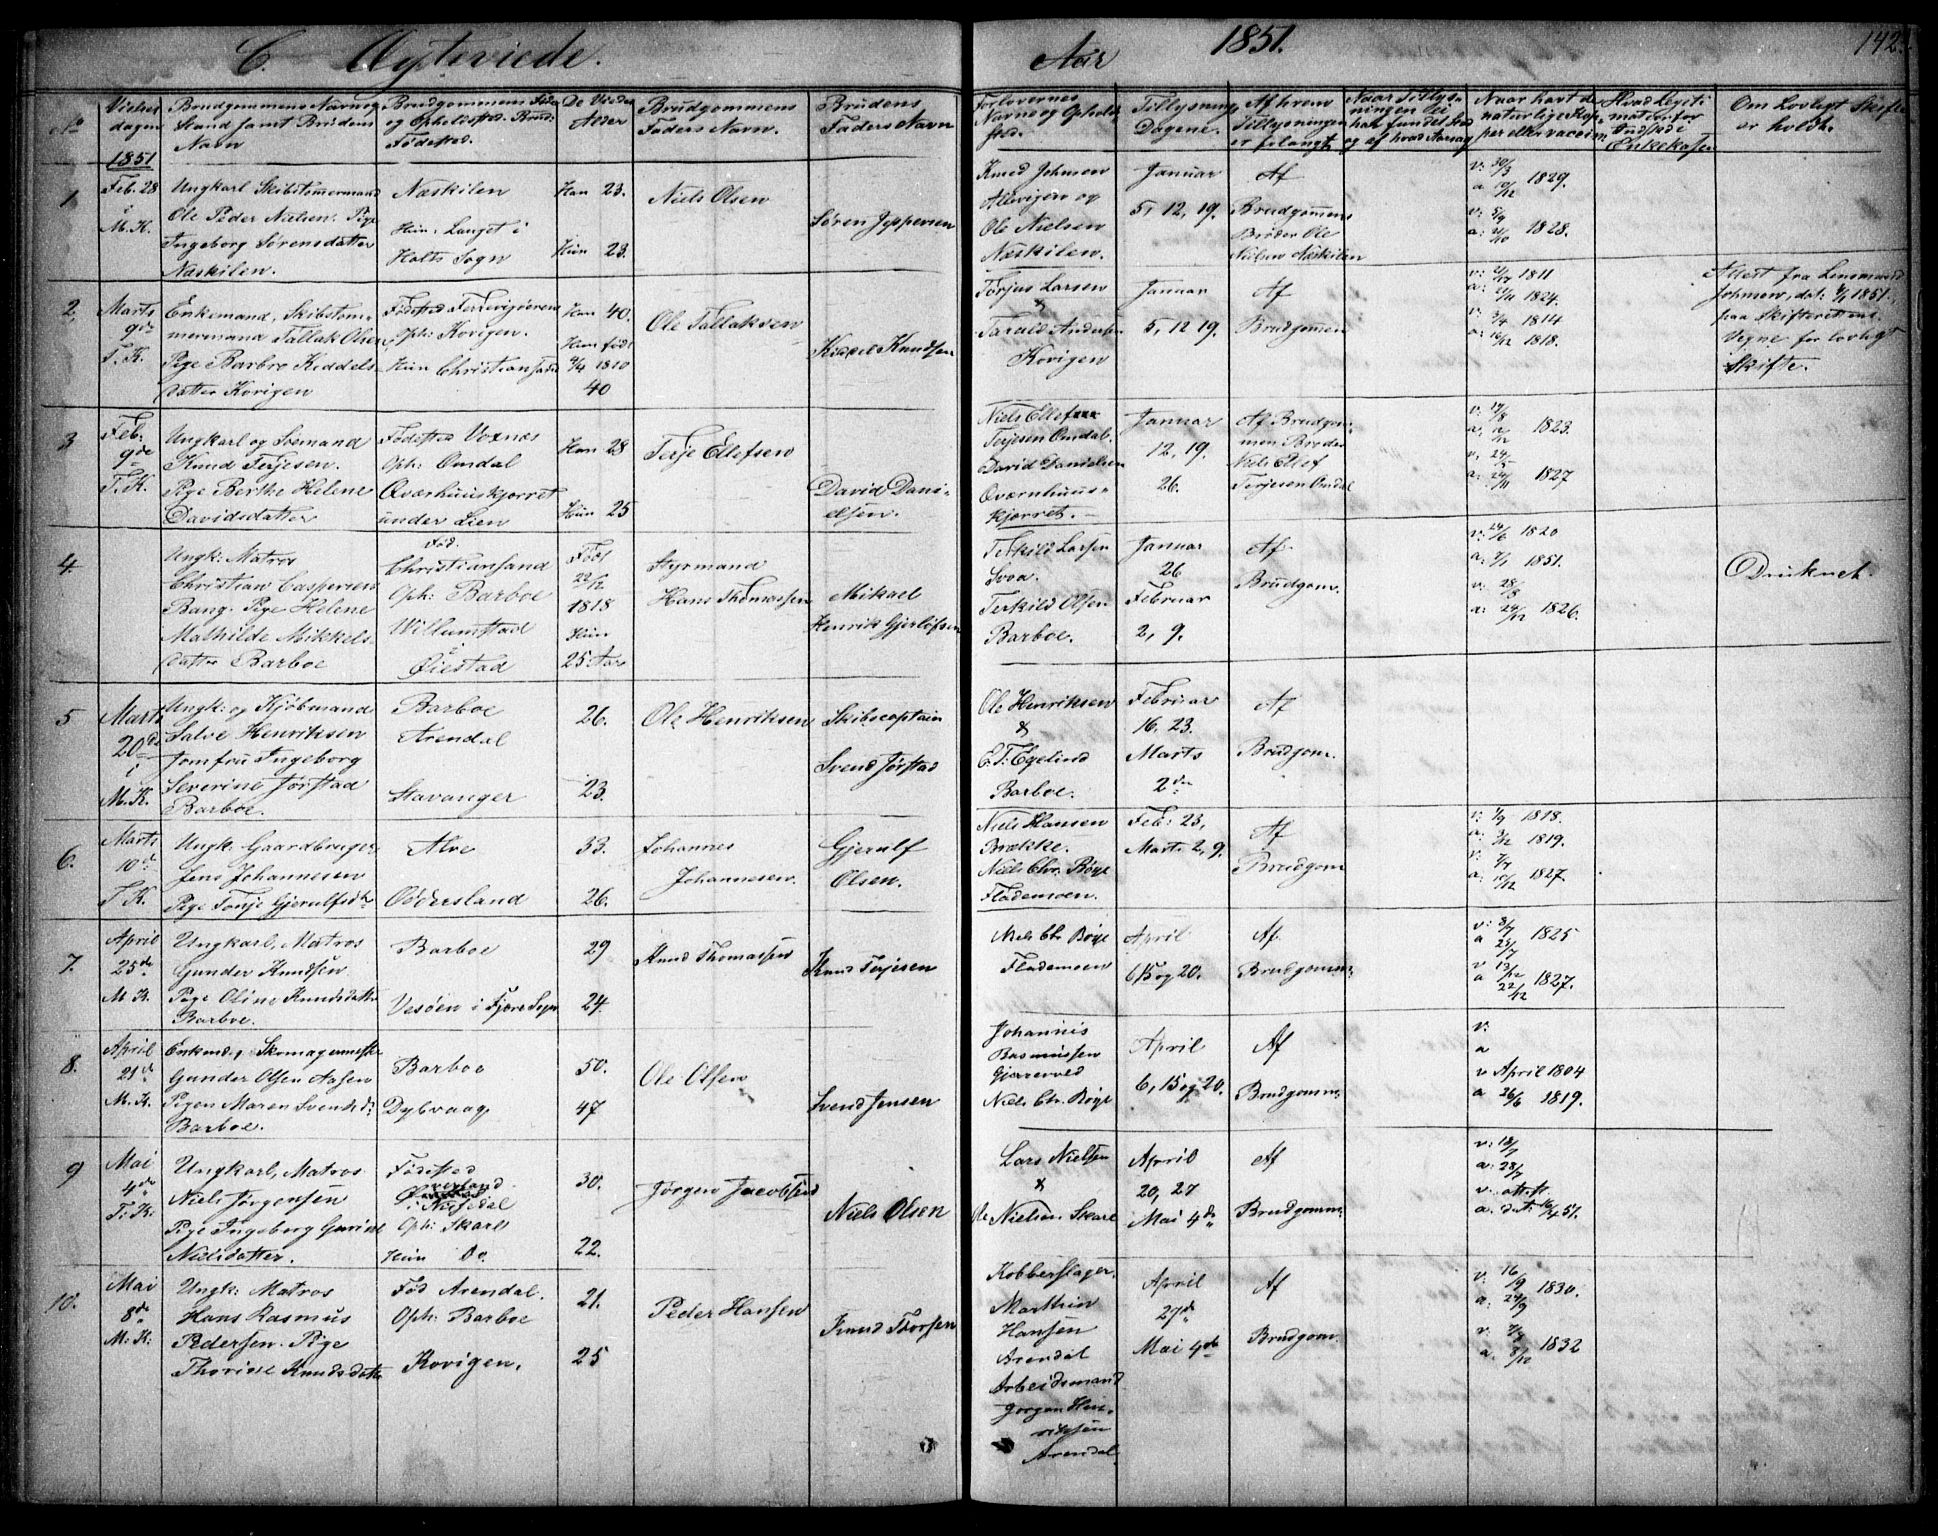 C. Ægteviede.
Aar 1851.
142.
No
Vielses dagen
Brudgommens Navn og Stand samt Brudens Navn
Brudgommens Føde og Opholdssted. Bruds Fødested.
De Viedes Alder
Brudgommens Faders Navn.
Brudens Faders Navn
Forlovernes Navne og Opholds sted.
Tillysnings Dagene.
Af hvem Tillysningen er forlangt
Om Lovligt Skifte er holdt.
1851
1
Feb. 28
i
M. K.
Ungkarl Skibstømmermand
Ole Peder Nielsen. Pige
Ingeborg Sørensdatter
Næskilen.
Næskilen
Hun: Langet i
Holts Sogn
Han 23.
Hun 23.
Niels Olsen
Søren Jeppesen
Knud Johnsen
Alevigen og
Ole Nielsen
Næskilen.
Januar
5, 12, 19.
Af
Brudgommens
Broder Ole
Nielsen Næskilen
v: 30/3
a 12/12 1829.
v: 5/9
a: 2/10 1828.
2,
Marts
9de
T. K.
Enkemand, Skibstøm-
mermand Tallak Olsen
Pige Barbro Keddels
datter Kovigen
Oph: Kovigen.
Hun Christiansand
Han 40.
Hun født
1810
40
Ole Tallaksen
Kiddel Knudsen
Torjus Larsen
&
Tarald Andersen
Kovigen
Januar
5, 12 19.
Af
Brudgomen
1811
1824.
v: 3/4 1814
a: 1818.
Attest fra Lensmand
Johnsen, dat: 1851.
paa Skifterettens
Vegne for lovligt
Skifte.
3
Feb:
9de
T. K.
Ungkarl og Sømand
Knud Terjesen.
Pige Berthe Helene
Davidsdatter
Fødested Voxnæs
Oph: Omdal
Qværhuuskjorret
under Lien
Han 28
Hun 25
Terje Ellefsen
David Dani-
elsen.
Niels Ellef
Terjesen Omdal.
David Danielsen
Qværnhuus-
kjorret.
Januar
12, 19.
26.
Af Brudgom-
men Broder
Niels Ellef
Terjesen Omdal
1823.
1827
4.
Ungk: Matros
Christian Caspersen
Bang. Pige Helene
Mathilde Mikkels
datter Barboe
Fød.
Christiansand
Oph: Barboe
Willumstad
i
Øiestad
Født
22/12
1818
Hun
25 Aar
Styrmand
Hans Thomassen
Mikael
Henrik Gjerløfsen
Terkild Larsen
Svoa.
Terkild Olsen
Barboe.
Januar
26
Februar
2, 9.
Af
Brudgom.
v: 24/6 1820
a: 7/1 1851.
v: 28/8
a: 24/12 1826.
Druknet.
5
Marts
20de
i
M. K.
Ungk: og Kjøbmand
Salve Henriksen
Jomfru Ingeborg
Severine Jørstad
Barboe.
Barboe
Arendal
Stavanger
26.
23.
Ole Henriksen
Skibscaptain
Svend Jørstad
Ole Henriksen
&
C. T. Egelund
Barboe.
Februar
16, 23.
Marts
2den
Af
Brudgom.
6.
Marts
10de
T K.
Ungk. Gaardbruger
Jens Johannesen
Pige Tonje Gjerulfsdtr
Alve
Oddersland
33.
26.
Johannes
Johannesen.
Gjerulf
Olsen.
Niels Hansen
Brække.
Niels Chr. Bøye
Flødemoen.
Feb: 23,
Marts 2, 9.
Af
Brudgom
v: 1/9 1818.
a: 3/12 1819.
v: 7/7
a: 10/12 1827.
7.
April
25de
M. K.
Ungkarl, Matros
Gunder Knudsen
Pige Oline Knudsdatter
Barboe.
Barboe
Vesøen i Fjære Sogn
29
24.
Knud Thomassen
Knud Terjesen
Niels Chr Bøye
Flødemoen
April
6, 15 og 20.
Af
Brudgomm:
v: 3/7
a 25/7 1825
v 13/12
a 22/12 1827.
8.
April
21de
M. K.
Enkemd, Skomagermester
Gunder Olsen Aasen
Pigen Maren Svendsd:
Barboe.
Barboe
Dybvaag
50.
47
Ole Olsen
Svend Jensen
Johannis
Rasmussen
Gjærevold
Niels Chr. Bøye
April
6, 15 og 20.
Af
Brudgomm:
v:
a
v April 1804
a 26/6 1819.
9
Mai
4de
T: K:
Ungkarl, Matros
Niels Jørgensen
Pige Ingeborg Gurine
Nielsdatter.
Fødested
Øverland
i Nissedal
Oph: Skarel
Hun Do.
30.
22.
Jørgen Jacobsen
Niels Olsen
Lars Nielsen
&
Ole Nielsen Skarel
April
20, 27
Mai 4de
Af
Brudgomm:
v: 18/7
a: 28/7
v. attest
a. dat: 16/4 51.
10.
Mai
8de
M: K:
Ungk: Matros
Hans Rasmus
Pedersen. Pige
Thorine Knudsdatter
Fød Arendal.
Oph: Barboe
Kovigen.
21.
25
Peder Hansen
Knud Thorsen
Kobberslager
Marthin
Hansen
Arendal
Arbeidsmand
Jørgen Hen-
riksen
Arendal.
April
27de
Mai 4de
Af
Brudgom
v: 16/9
a: 24/9 1830.
v: 7/9
a: 8/12 1832